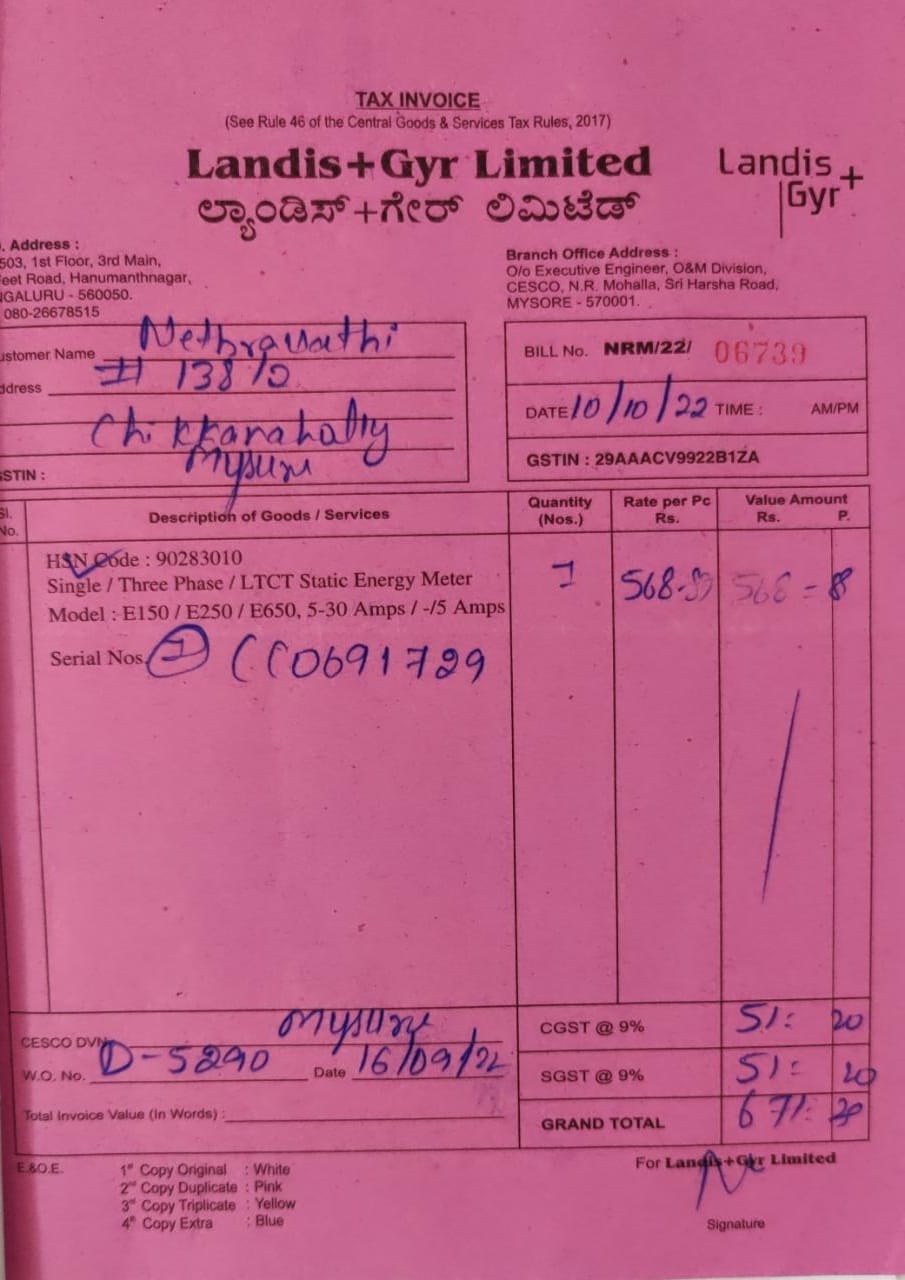 TAX INVOICE
(See Rule 46 of the Central Goods & Services Tax Rules, 2017)
Landis+Gyr Limited
ಲ್ಯಾಂಡಿಸ್+ಗೇರ್ ಲಿಮಿಟೆಡ್
Landis
Gyr+
. Address :
503, 1st Floor, 3rd Main,
eet Road, Hanumanthnagar,
GALURU - 560050.
080-26678515
Branch Office Address :
O/o Executive Engineer, O&M Division,
CESCO, N.R. Mohalla, Sri Harsha Road,
MYSORE - 570001.
ustomer Name Nethravathi
ddress # 138/2
Chikkarahally
Mysuru
STIN :
BILL No. NRM/22/ 06739
DATE 10/10/22 TIME : AM/PM
GSTIN : 29AAACV9922B1ZA
Sl. No. Description of Goods / Services Quantity (Nos.) Rate per Pc Rs. Value Amount Rs. P.
HSN Code : 90283010
Single / Three Phase / LTCT Static Energy Meter 1
Model : E150 / E250 / E650, 5-30 Amps / -/5 Amps
Serial Nos. 1 CC0691729
CESCO DVN Mysuru
W.O. No. D-5290 Date 16/09/22
Total Invoice Value (In Words) :
CGST @ 9% 51: 20
SGST @ 9% 51: 20
GRAND TOTAL 671:
E.&O.E.
1st Copy Original : White
2nd Copy Duplicate : Pink
3rd Copy Triplicate : Yellow
4th Copy Extra : Blue
For Landis+Gyr Limited
Signature